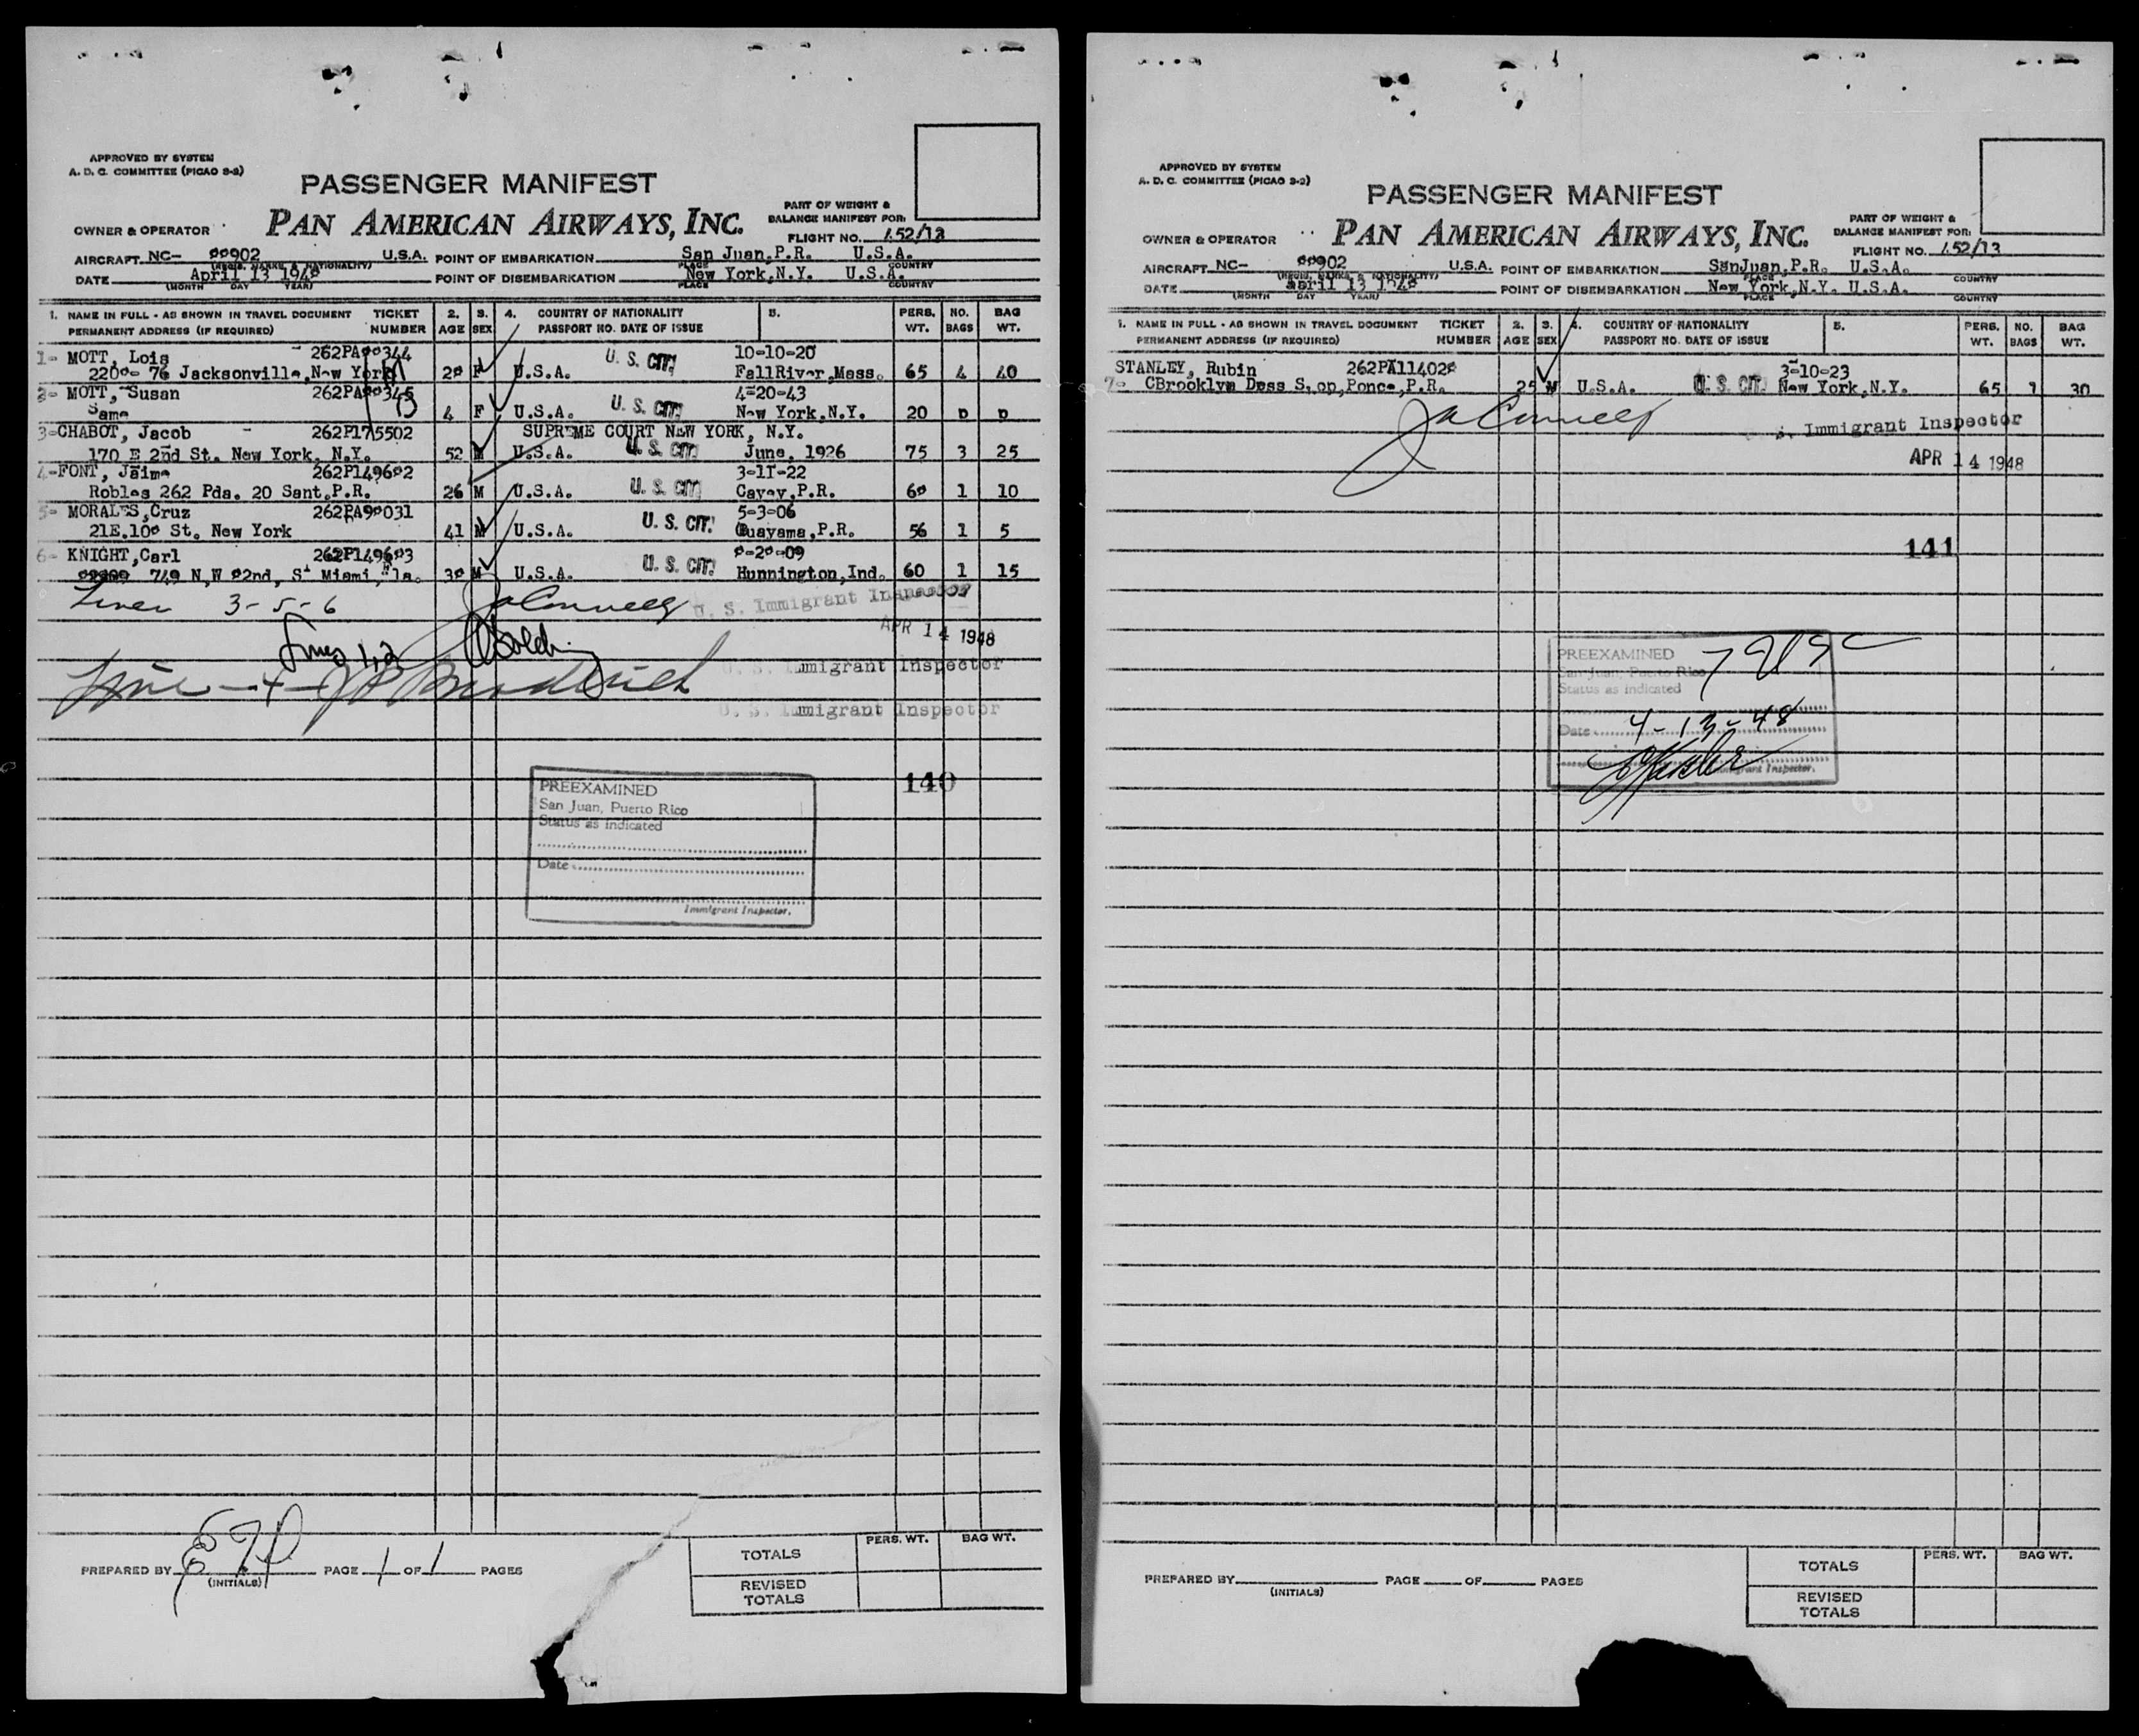 APPROVED BY SYSTEM
A. D. C. COMMITTEE (PICAO 3-2)
PASSENGER MANIFEST
OWNER & OPERATOR PAN AMERICAN AIRWAYS, INC.
PART OF WEIGHT &
BALANCE MANIFEST FOR:
FLIGHT NO. 152/13
AIRCRAFT NC- 88902 U.S.A. POINT OF EMBARKATION San Juan,P.R. U.S.A.
(REGIS. MARKS & NATIONALITY) PLACE COUNTRY
DATE April 13 1948 POINT OF DISEMBARKATION New York,N.Y. U.S.A.
(MONTH DAY YEAR) PLACE COUNTRY
1. NAME IN FULL - AS SHOWN IN TRAVEL DOCUMENT TICKET 2. 3. 4. COUNTRY OF NATIONALITY 5. PERS. NO. BAG
PERMANENT ADDRESS (IF REQUIRED) NUMBER AGE SEX PASSPORT NO. DATE OF ISSUE WT. BAGS WT.
1- MOTT, Lois 262PA80344 U. S. CIT. 10-10-20
2208- 76 Jacksonville,New York 28 F U.S.A. FallRiver,Mass. 65 4 40
2- MOTT, Susan 262PA80345 4-20-43
Same 4 F U.S.A. U. S. CIT. New York,N.Y. 20 0 0
3-CHABOT, Jacob 262P175502 SUPREME COURT NEW YORK, N.Y.
170 E 2nd St. New York, N.Y. 52 M U.S.A. U. S. CIT. June, 1926 75 3 25
4-FONT, Jaime 262P149602 3-11-22
Robles 262 Pda. 20 Sant.P.R. 26 M U.S.A. U. S. CIT. Cayey,P.R. 60 1 10
5- MORALES,Cruz 262PA90031 5-3-06
21E.108 St. New York 41 M U.S.A. U. S. CIT. Guayama,P.R. 56 1 5
6- KNIGHT,Carl 262P149603 8-20-09
749 N,W 82nd, St Miami,Fla. 38 M U.S.A. U. S. CIT. Hunnington,Ind. 60 1 15
Lines 3-5-6 U. S. Immigrant Inspector
APR 14 1948
Lines 1,2 U. S. Immigrant Inspector
Line - 4 - U. S. Immigrant Inspector
140
PREEXAMINED
San Juan, Puerto Rico
Status as indicated
Date
Immigrant Inspector.
PREPARED BY PAGE 1 OF 1 PAGES
(INITIALS)
PERS. WT. BAG WT.
TOTALS
REVISED
TOTALS
APPROVED BY SYSTEM
A. D. C. COMMITTEE (PICAO 3-2)
PASSENGER MANIFEST
OWNER & OPERATOR PAN AMERICAN AIRWAYS, INC.
PART OF WEIGHT &
BALANCE MANIFEST FOR:
FLIGHT NO. 152/13
AIRCRAFT NC- 88902 U.S.A. POINT OF EMBARKATION SanJuan,P.R. U.S.A.
(REGIS. MARKS & NATIONALITY) PLACE COUNTRY
DATE April 13 1948 POINT OF DISEMBARKATION New York,N.Y. U.S.A.
(MONTH DAY YEAR) PLACE COUNTRY
1. NAME IN FULL - AS SHOWN IN TRAVEL DOCUMENT TICKET 2. 3. 4. COUNTRY OF NATIONALITY 5. PERS. NO. BAG
PERMANENT ADDRESS (IF REQUIRED) NUMBER AGE SEX PASSPORT NO. DATE OF ISSUE WT. BAGS WT.
STANLEY, Rubin 262PA114028 3-10-23
7- Ponce,P.R. 25 M U.S.A. U. S. CIT. New York,N.Y. 65 1 30
Immigrant Inspector
APR 14 1948
141
PREEXAMINED
San Juan, Puerto Rico
Status as indicated
Date 4-13-48
Immigrant Inspector.
PREPARED BY PAGE OF PAGES
(INITIALS)
PERS. WT. BAG WT.
TOTALS
REVISED
TOTALS